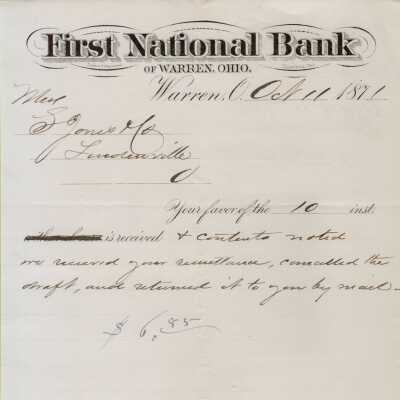 First National Bank
OF WARREN, OHIO.
Warren, O. Oct 11 1871
Mess
S Jones & Co
Lindenville
O
Your favor of the 10 inst.
is received & contents noted
we received your remittance, cancelled the
draft, and returned it to you by mail—
$ 6.85